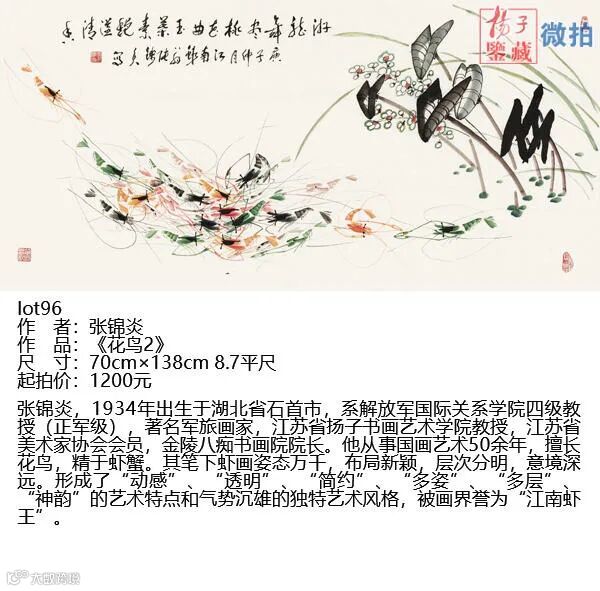 杨子
鉴藏
微拍
lot96
作　者：张锦炎
作　品：《花鸟2》
尺　寸：70cm×138cm 8.7平尺
起拍价：1200元
张锦炎，1934年出生于湖北省石首市，系解放军国际关系学院四级教
授（正军级），著名军旅画家，江苏省扬子书画艺术学院教授，江苏省
美术家协会会员，金陵八痴书画院院长。他从事国画艺术50余年，擅长
花鸟，精于虾蟹。其笔下虾画姿态万千，布局新颖，层次分明，意境深
远。形成了“动感”、“透明”、“简约”、“多姿”、“多层”、
“神韵”的艺术特点和气势沉雄的独特艺术风格，被画界誉为“江南虾
王”。
大数跨境